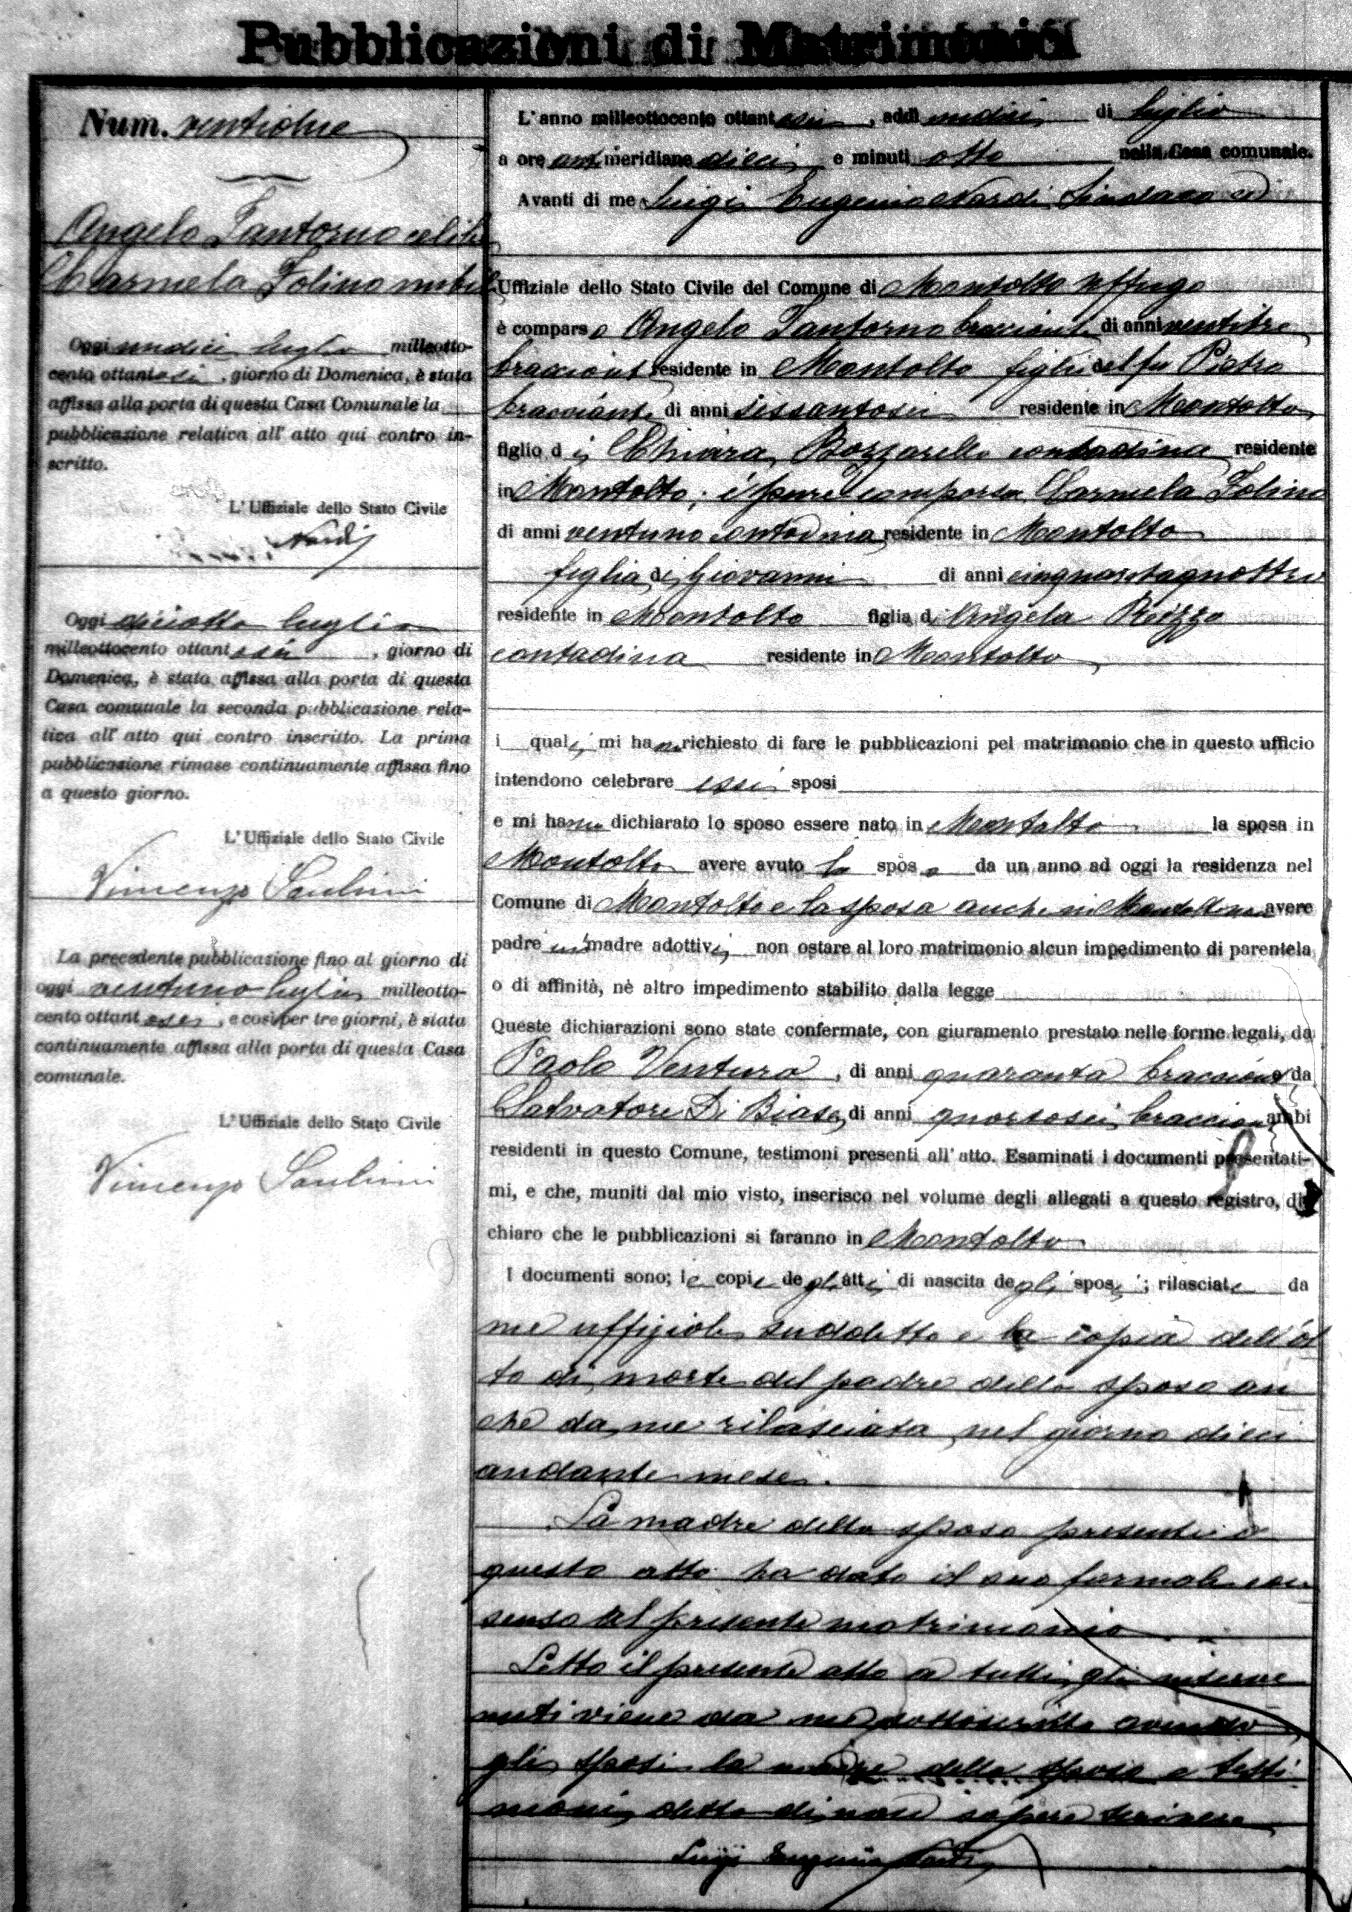 Pubblicazioni di Matrimonio
Num. ventidue
Angelo Fantorno celibe
Charmela Folino nubile
Oggi undici luglio milleotto-
cento ottantasei, giorno di Domenica, è stata
affissa alla porta di questa Casa Comunale la
pubblicazione relativa all' atto qui contro in-
scritto.
L' Uffiziale dello Stato Civile
Nardi
Oggi diciotto luglio
milleottocento ottantasei, giorno di
Domenica, è stata affissa alla porta di questa
Casa comunale la seconda pubblicazione rela-
tiva all' atto qui contro inscritto. La prima
pubblicazione rimase continuamente affissa fino
a questo giorno.
L' Uffiziale dello Stato Civile
Vincenzo
La precedente pubblicazione fino al giorno di
oggi ventuno luglio milleotto-
cento ottantasei, e così per tre giorni, è stata
continuamente affissa alla porta di questa Casa
comunale.
L' Uffiziale dello Stato Civile
Vincenzo
L' anno milleottocento ottantasei, addì undici di luglio
a ore antimeridiane dieci e minuti otto nella Casa comunale.
Avanti di me Luigi Eugenio Nardi Sindaco ed
Uffiziale dello Stato Civile del Comune di Montalto Uffugo
è comparso Angelo Fantorno bracciante di anni ventitre
bracciante residente in Montalto figlio del fu Pietro
bracciante di anni sessantasei residente in Montalto
figlio di Chiara Bozzarello contadina residente
in Montalto; è pure comparsa Carmela Folino
di anni ventuno contadina residente in Montalto
figlia di Giovanni di anni cinquantaquattro
residente in Montalto figlia d Angela Rizzo
contadina residente in Montalto
i quali mi han richiesto di fare le pubblicazioni pel matrimonio che in questo ufficio
intendono celebrare essi sposi
e mi hanno dichiarato lo sposo essere nato in Montalto la sposa in
Montalto avere avuto lo sposo da un anno ad oggi la residenza nel
Comune di Montalto e la sposa anche in Montalto non avere
padre nè madre adottivi non ostare al loro matrimonio alcun impedimento di parentela
o di affinità, nè altro impedimento stabilito dalla legge
Queste dichiarazioni sono state confermate, con giuramento prestato nelle forme legali, da
Paolo Ventura, di anni quaranta bracciante da
Salvatore Di Biase, di anni bracciante ambi
residenti in questo Comune, testimoni presenti all' atto. Esaminati i documenti presentati-
mi, e che, muniti dal mio visto, inserisco nel volume degli allegati a questo registro, di-
chiaro che le pubblicazioni si faranno in Montalto
I documenti sono; le copie degli atti di nascita degli sposi; rilasciate da
me uffiziale suddetto e la copia dell'at
to di morte del padre dello sposo an
che da me rilasciata nel giorno dieci
andante mese.
La madre dello sposo presente a
questo atto ha dato il suo formale con
senso al presente matrimonio
Letto il presente atto a tutti gli interve
nuti viene da me sottoscritto avendo
gli sposi la madre dello sposo e testi
moni detto di non sapere scrivere
Luigi Eugenio Nardi